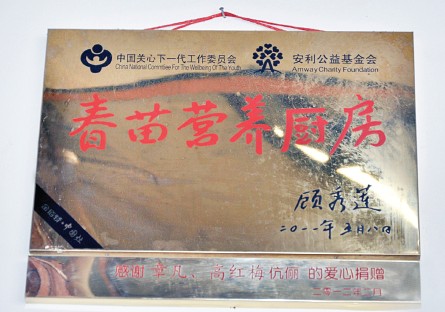 中国关心下一代工作委员会
China National Committee For The Wellbeing Of The Youth
安利公益基金会
Amway Charity Foundation
春苗营养厨房
顾秀莲
二〇一一年五月八日
感谢 章凡、高红梅 伉俪 的爱心捐赠